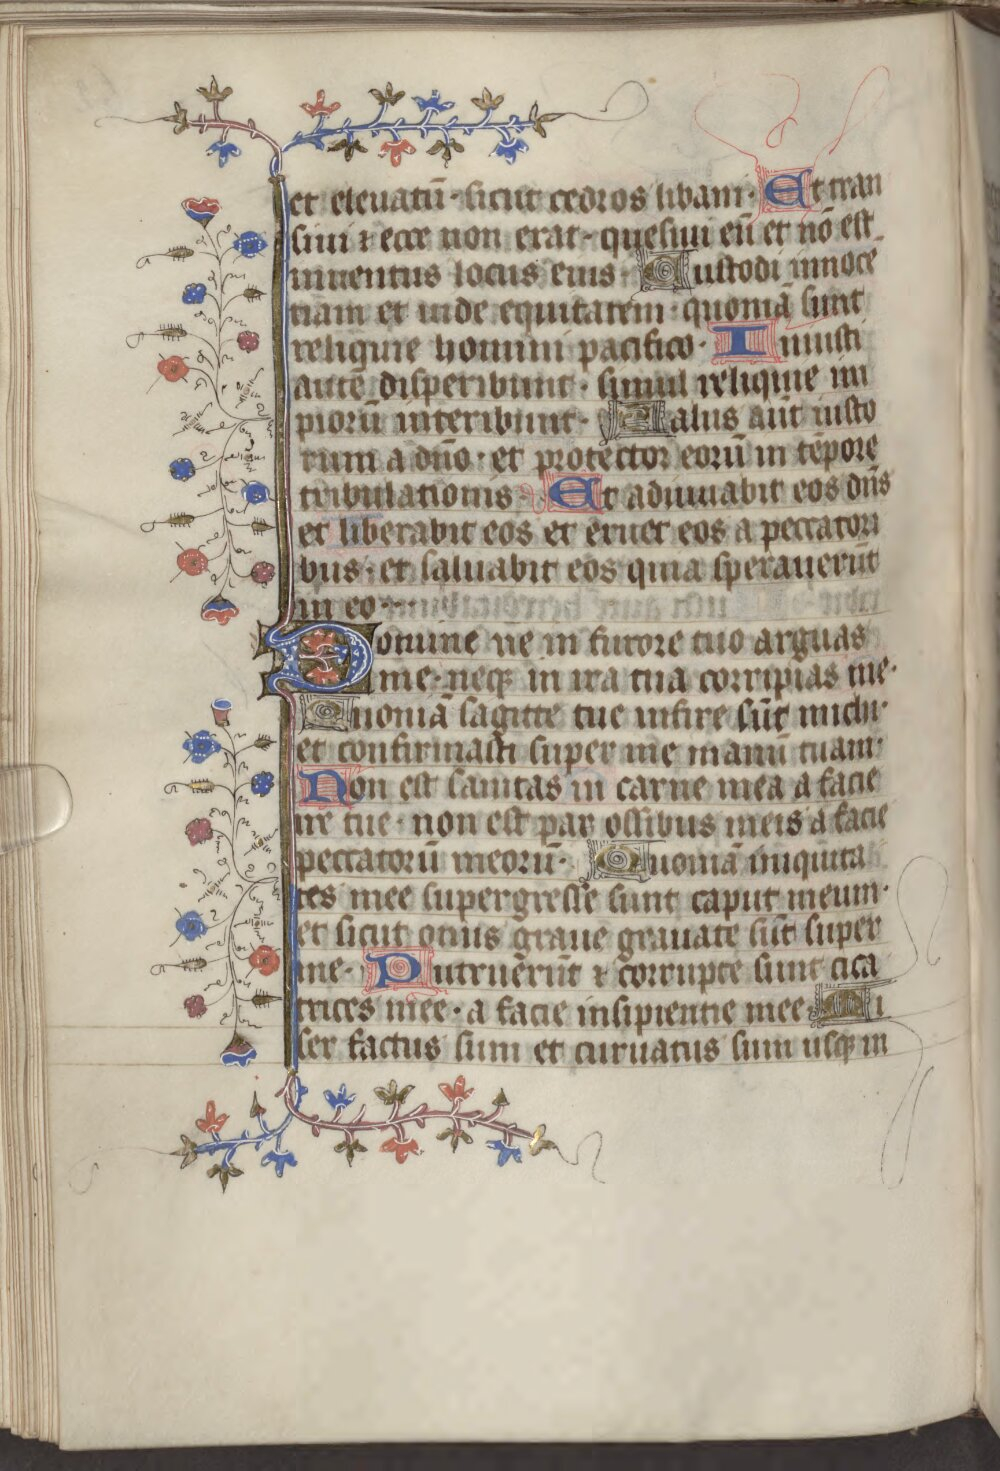 et eleuatū · sicut cedros libani · Et tran
siui ⁊ ecce non erat · quesiui eū et nō est
inuentus locus eius · Custodi innocē
tiam et uide equitatem · quoniā sunt
reliquie homini pacifico · Iniusti
autē disperibunt · simul reliquie im
piorū interibunt · Salus aūt iusto
rum a dño · et protector eorū in tēpore
tribulationis · Et adiuuabit eos dñs
et liberabit eos et eruet eos a peccatori
bus · et saluabit eos quia sperauerūt
in eo ·
Domine ne in furore tuo arguas
me · neqꝫ in ira tua corripias me ·
Quoniā sagitte tue infixe sūt michi ·
et confirmasti super me manū tuam ·
Non est sanitas in carne mea a facie
ire tue · non est pax ossibus meis a facie
peccatorū meorū · Quoniā iniquita
tes mee supergresse sunt caput meum ·
et sicut onus graue grauate sūt super
me · Putruerūt ⁊ corrupte sunt cica
trices mee · a facie insipientie mee · Mi
ser factus sum et curuatus sum usqꝫ in